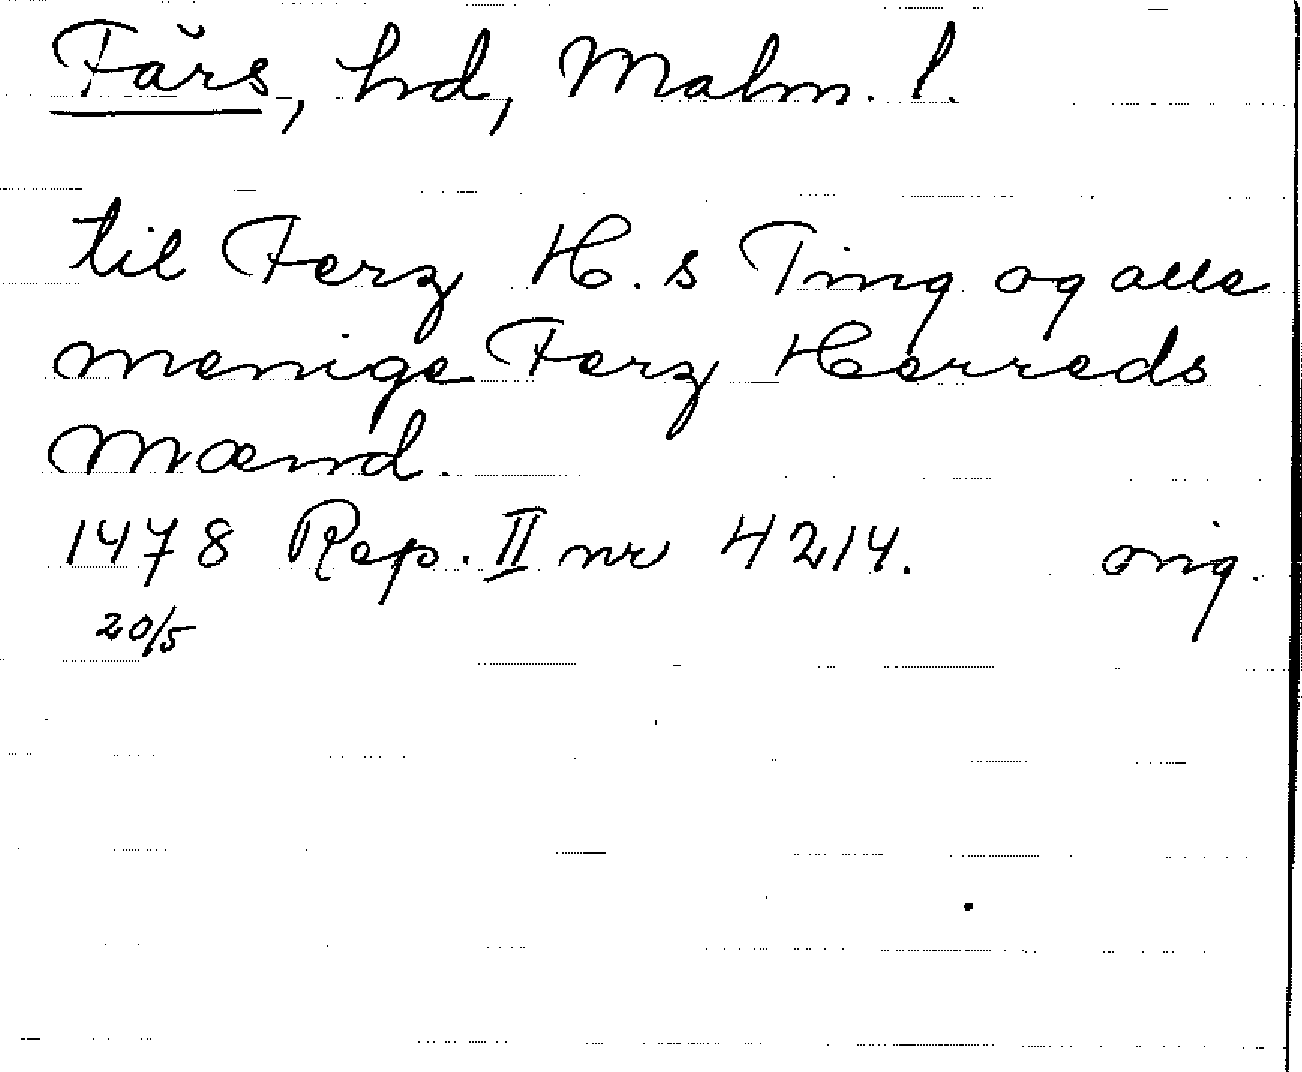 Färs, hd, Malm. l.
til Ferz H.s Ting og alle
menige Ferz Herreds
Mænd.
1478 Rep. II nr 4214. orig.
20/5